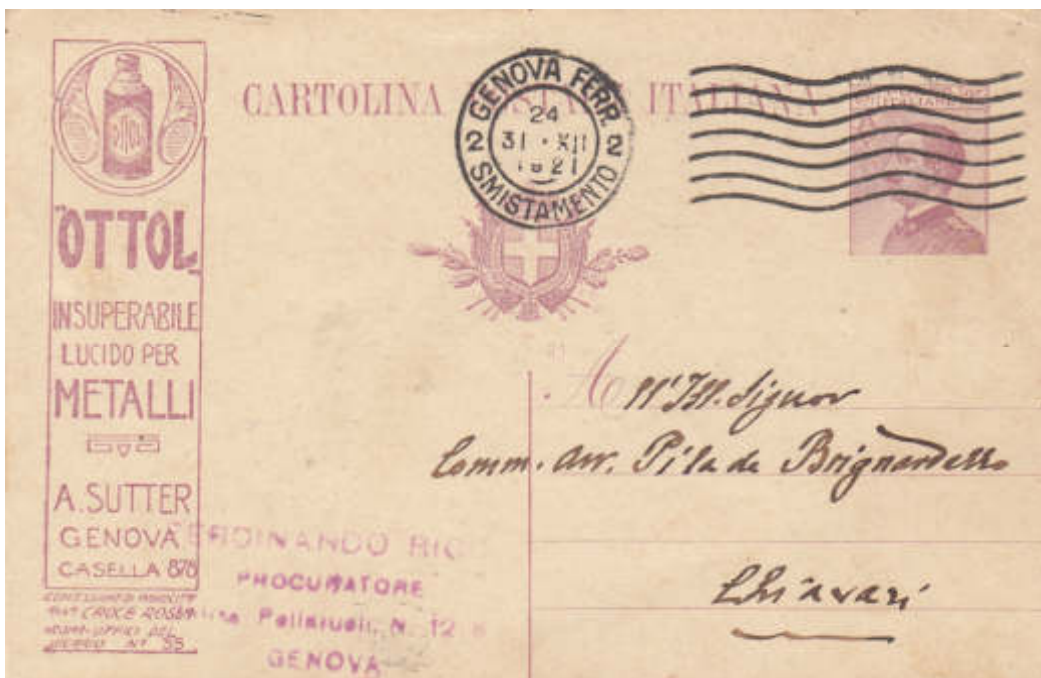 OTTOL
"OTTOL"
INSUPERABILE
LUCIDO PER
METALLI
A. SUTTER
GENOVA
CASELLA 878
CROCE ROSSA
UFFICI DEL
Nº 53
CARTOLINA ITALIANA
GENOVA FERR.
24
2 31 · XII 2
1921
SMISTAMENTO
A ll'Ill. Signor
Comm. Avv. Pila de Brignardello
Chiavari
FERDINANDO
PROCURATORE
N. 12
GENOVA